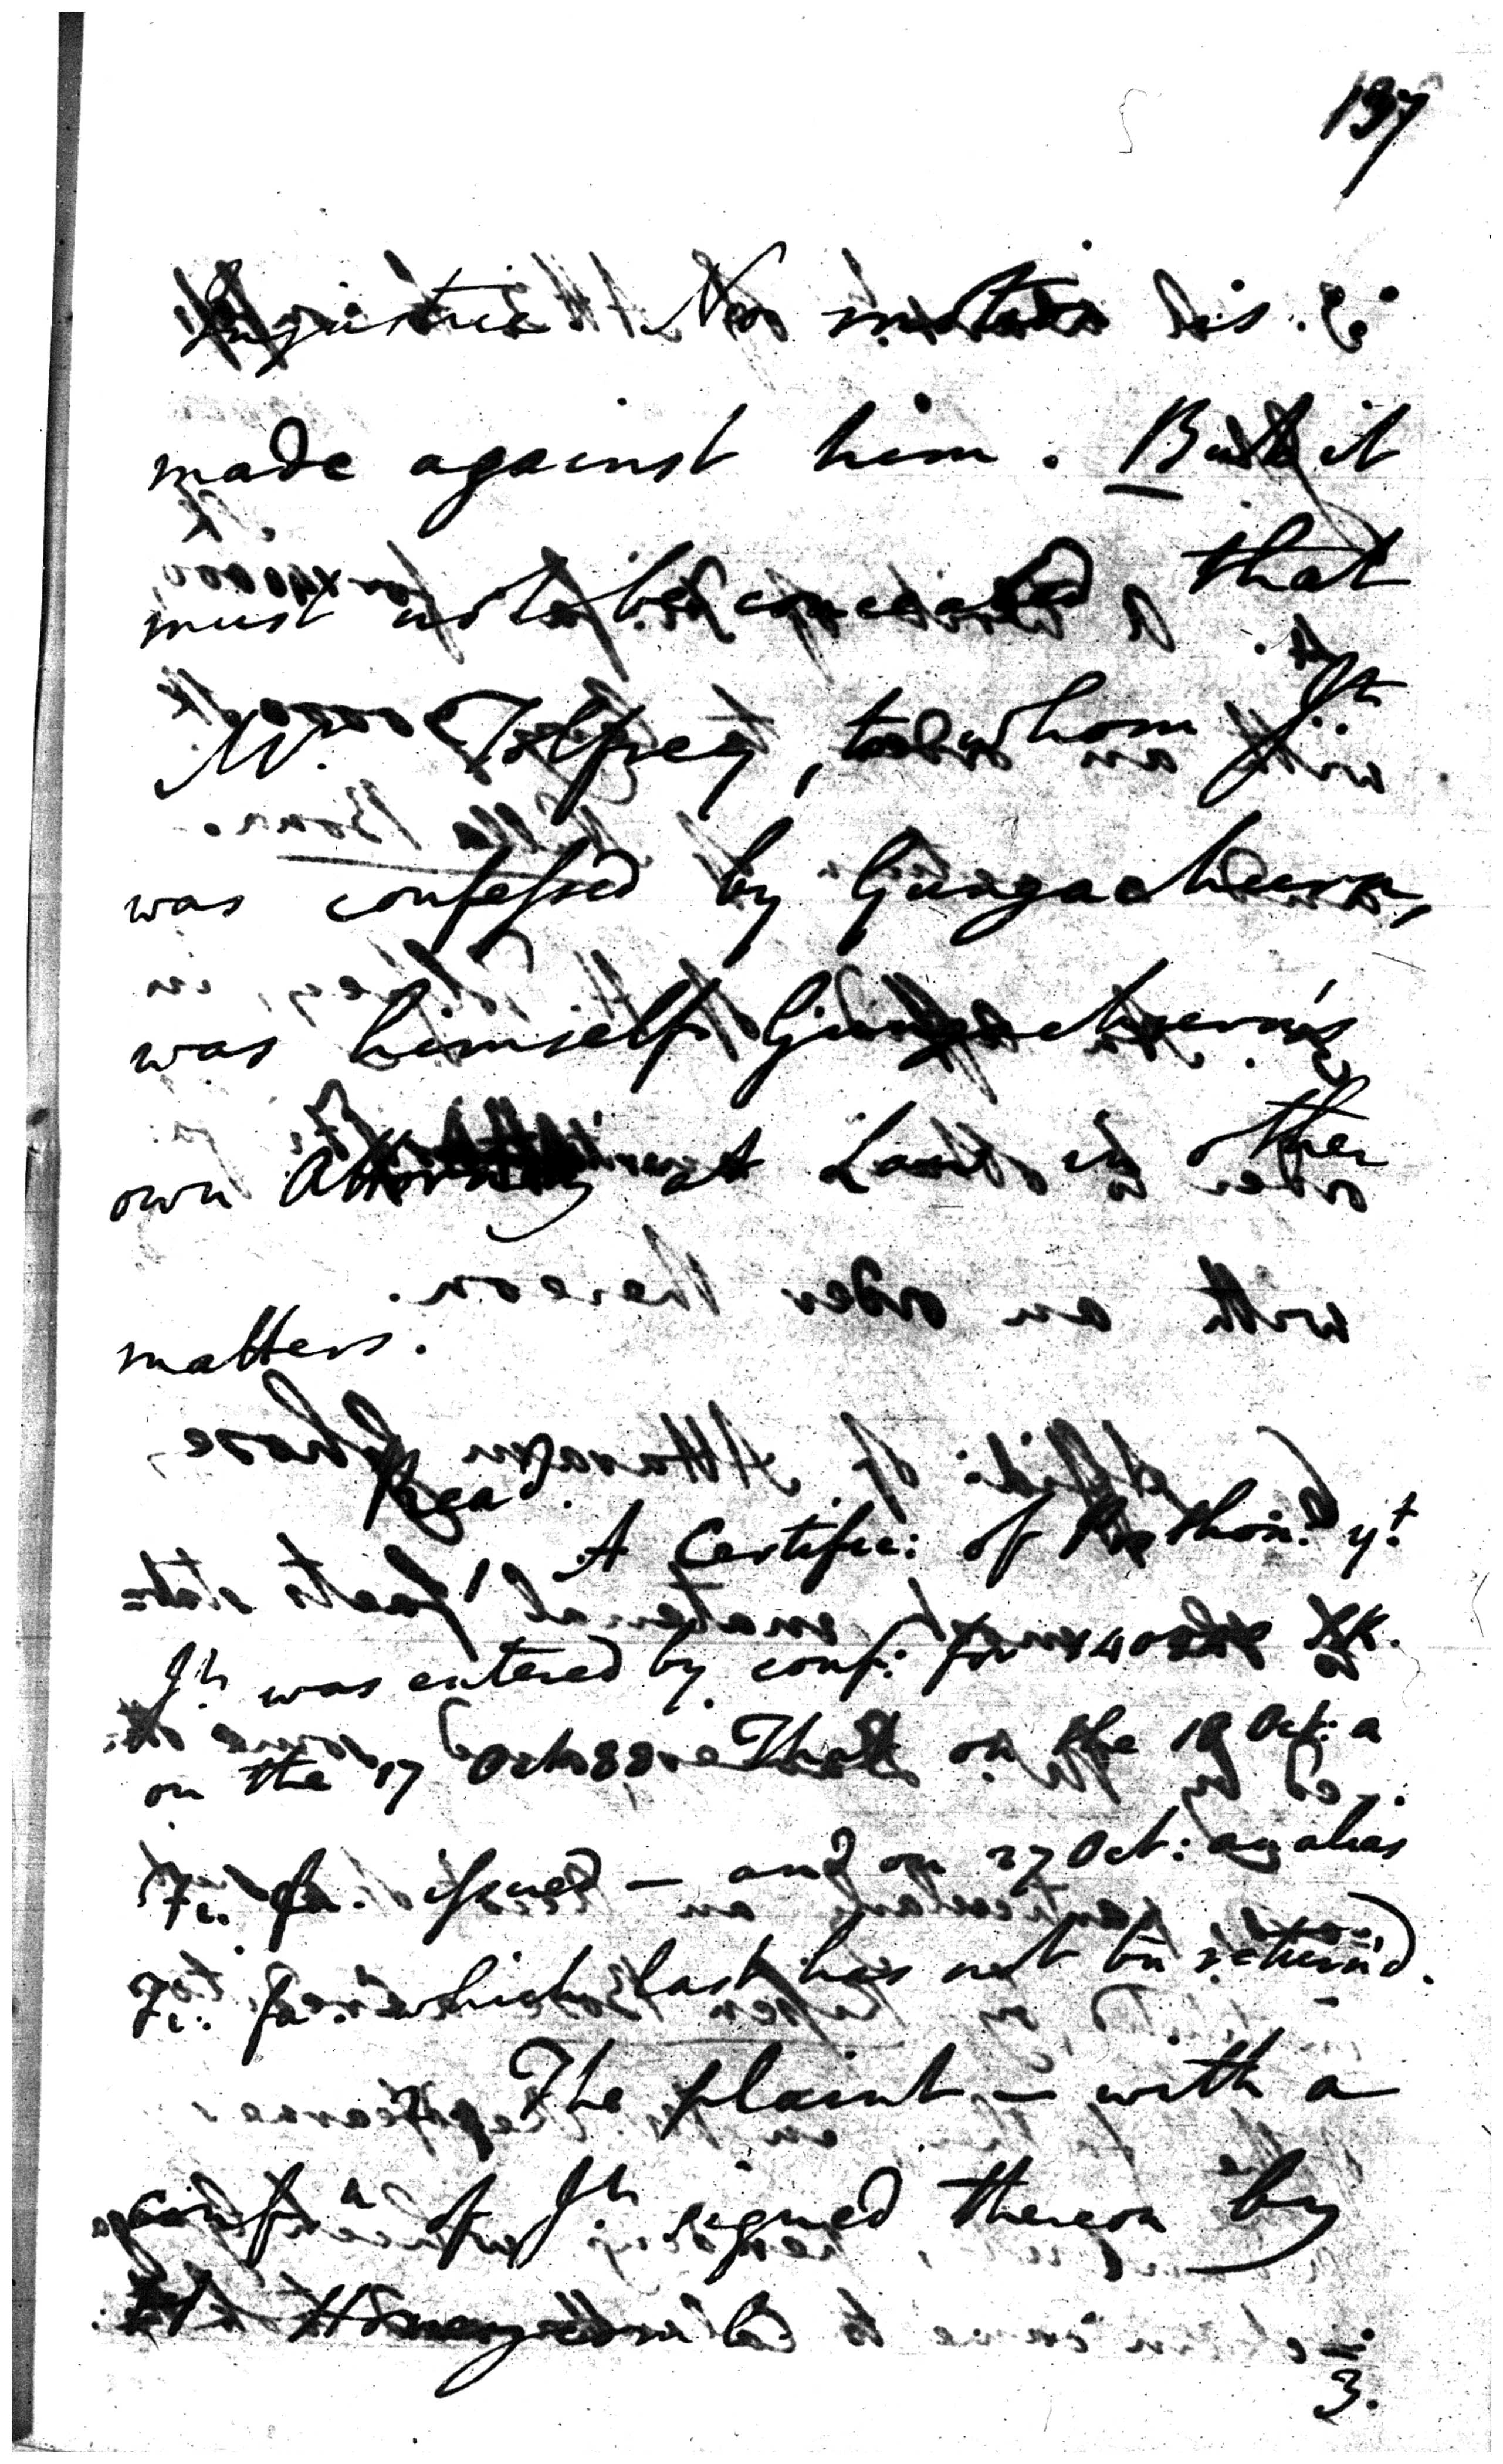 197
Injustice No motion is
made against him. But it
must not be concealed, that
Mr. Tolfrey, to whom Jt
was confessed by Gungachurn,
was himself Gungachurn's
own Attorney at Law in other
matters.
Read.
A Certific: of Prothon: yt
Jt was entered by conf: for
on the 17 Oct: 88. That on the 19 Oct: a
Fi: fa. issued — and on 27 Oct: an alias
Fi: fa. which last has not bn return'd.
The plaint — with a
confn of Jt signed thereon by
the Attorney
3.